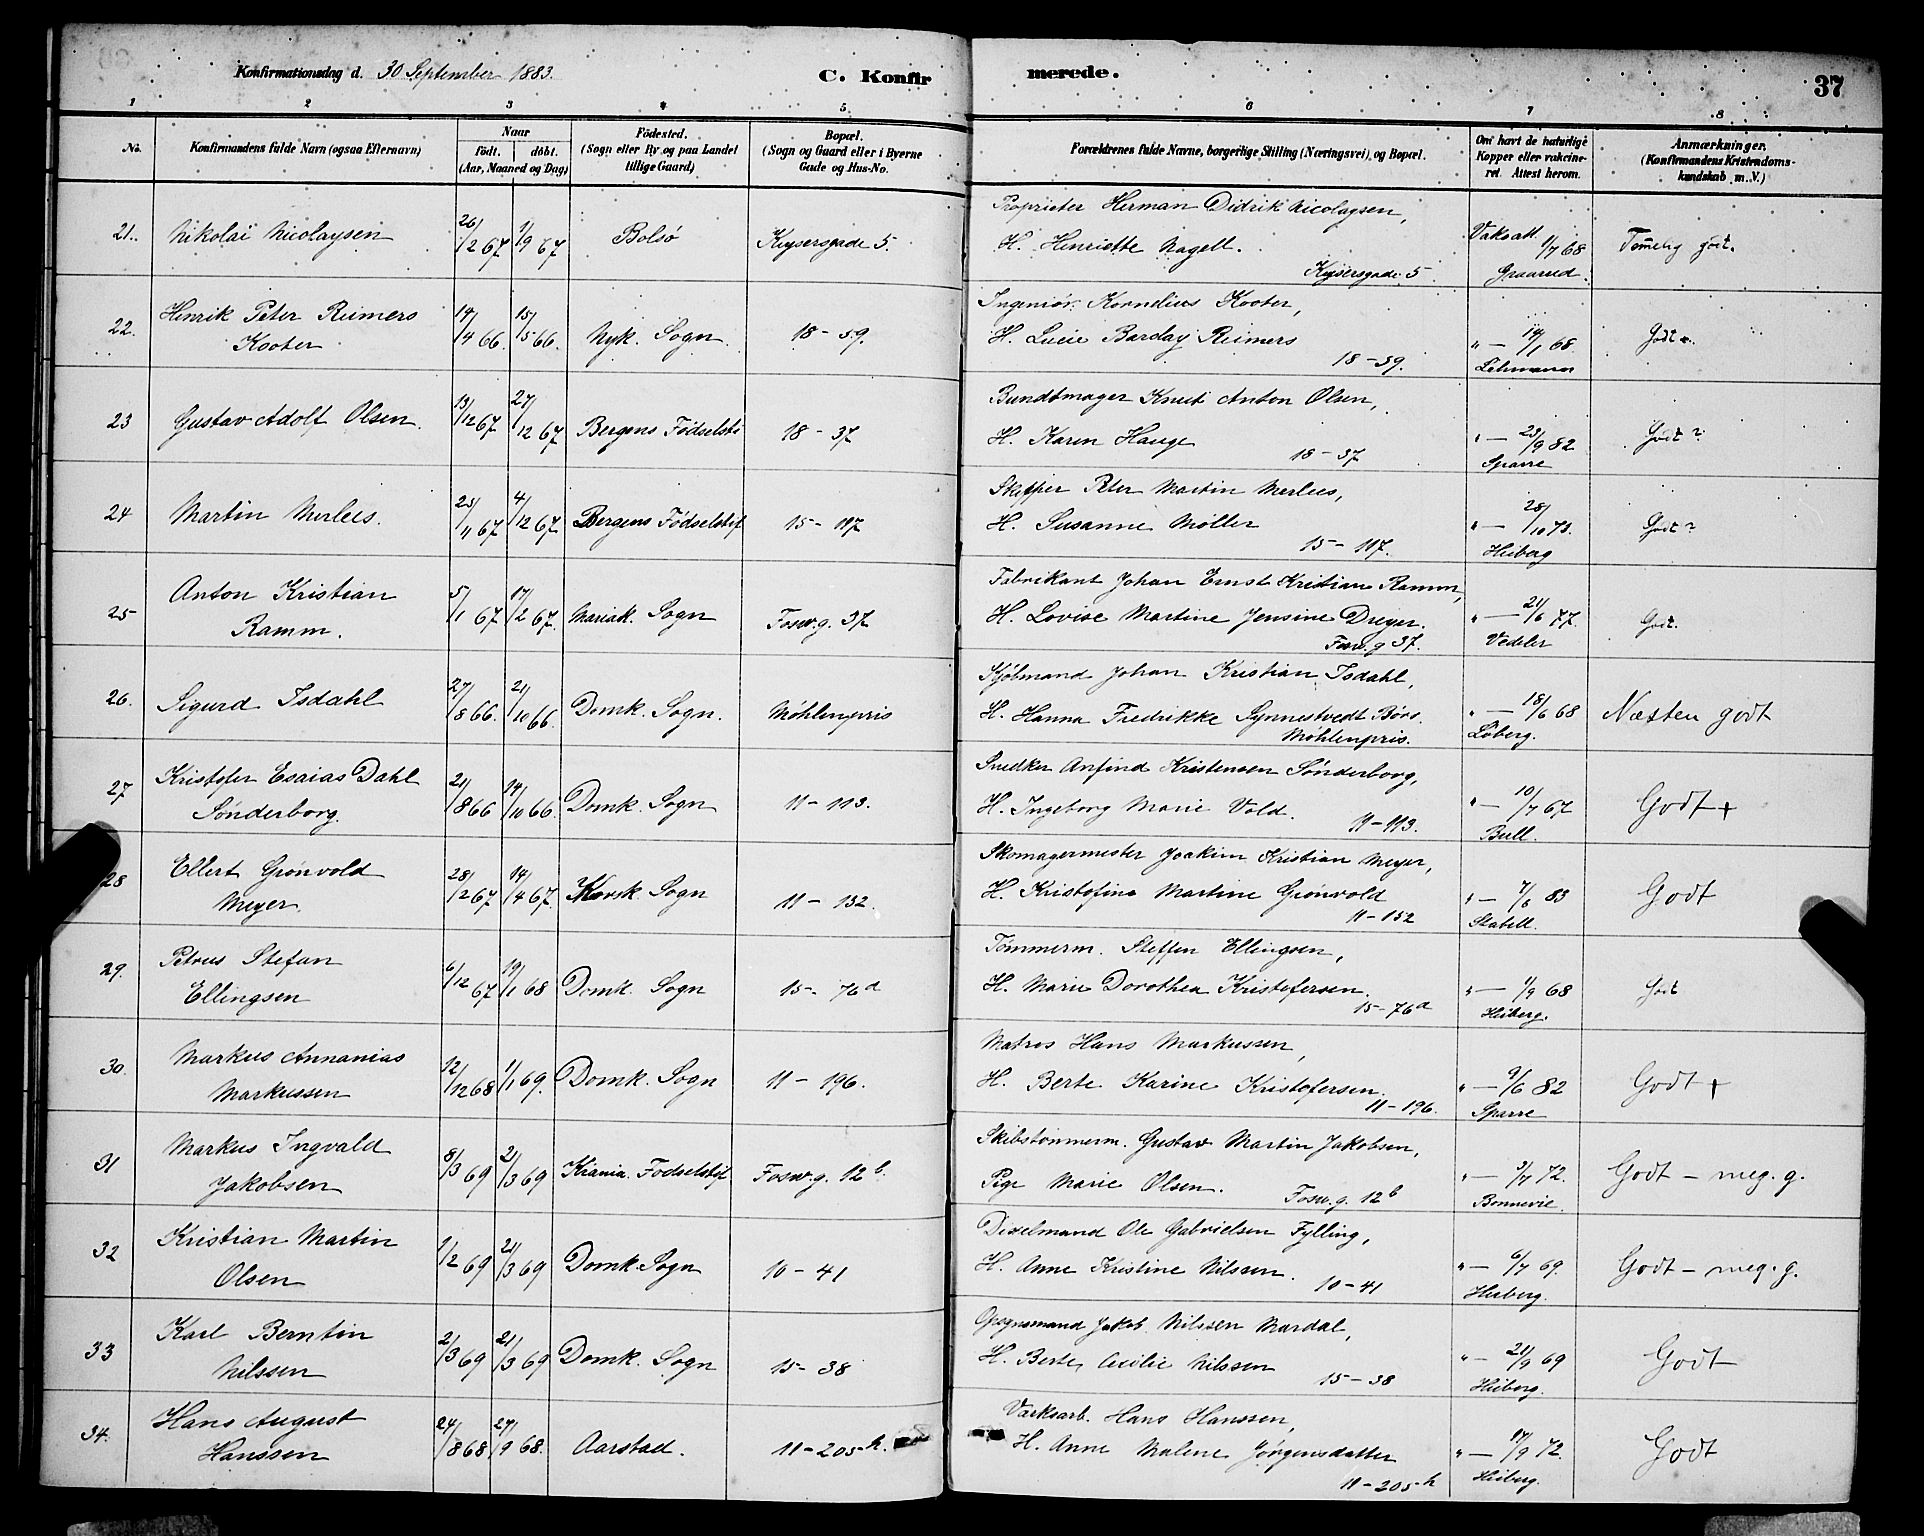 Konfirmationsdag d. 30 September 1883.
C. Konfirmerede.
37
1 2 3 4 5 6 7 8
No.
Konfirmandens fulde Navn (ogsaa Efternavn)
Naar
födt. döbt.
(Aar, Maaned og Dag)
Födested.
(Sogn eller By og paa Landet
tillige Gaard)
Bopæl.
(Sogn og Gaard eller i Byerne
Gade og Hus-No.
Forældrenes fulde Navne, borgerlige Stilling (Næringsvei), og Bopæl.
Om havt de naturlige
Kopper eller vakcine-
ret. Attest herom.
Anmærkninger.
(Konfirmandens Kristendoms-
kundskab m. V.)
21. Nikolai Nicolaysen 26/12 67 1/9 67 Bolsö Keysersgade 5.
Proprietær Herman Didrik Nicolaysen,
H. Henriette Nagell.
Keysersgade 5
Vakcatt. 1/7 68
Graarud.
Temelig godt.
22. Henrik Peter Reimers
Kooter
14/4 66. 15/5 66. Nyk. Sogn. 18-59.
Ingeniør Kornelius Kooter,
H. Lucie Barclay Reimers
18-59.
" — 14/1 68.
Lehmann
Godt.
23 Gustav Adolf Olsen. 13/12 67 27/12 67 Bergens Fødselsti 18-37
Bundtmager Knut Anton Olsen,
H. Karen Hauge
18-37
" — 23/9 82
Sparre
Godt?
24 Martin Merlees. 25/11 67 4/12 67 Bergens Fødselstif 15-117
Skipper Peter Martin Merlees,
H. Susanne Møller
15-117.
" — 28/10 78.
Heiberg
Godt?
25 Anton Kristian
Ramm.
5/1 67 17/2 67. Mariak. Sogn Fosw.g. 37
Fabrikant Johan Ernst Kristian Ramm,
H. Lovise Martine Jensine Dreyer.
Fosw.g 37.
" — 21/6 77.
Vedeler
Godt.
26. Sigurd Isdahl 27/8 66. 21/10 66. Domk. Sogn. Møhlenpris
Kjöbmand Johan Kristian Isdahl,
H. Hanna Fredrikke Synnestvedt Börs.
Møhlenpris.
" — 18/6 68
Löberg.
Næsten godt
27 Kristofer Esaias Dahl
Sønderborg.
21/8 66 14/10 66. Domk. Sogn 11-113.
Snedker Anfind Kristensen Sønderborg,
H. Ingeborg Marie Vold.
11-113.
" — 10/7 67
Bull.
Godt +
28 Ellert Grønvold
Meyer.
28/12 67 14/4 67. Korsk. Sogn 11-152.
Skomagermester Joakim Kristian Meyer,
H. Kristofine Martine Grønvold
11-152
" — 7/6 83
Stabell.
Godt
29. Petrus Stefan
Ellingsen
6/12 67 19/1 68 Domk. Sogn 15-76a
Tømmerm. Steffen Ellingsen,
H. Marie Dorothea Kristofersen.
15-76a
" — 1/9 68
Heiberg.
Godt
30. Markus Annanias
Markussen
12/12 68 1/1 69. Domk. Sogn 11-196.
Matros Hans Markussen,
H. Berte Karine Kristofersen.
11-196.
" — 9/6 82
Sparre
Godt +
31 Markus Ingvald
Jakobsen
8/3 69 21/3 69 Kiania. Fødselstif Fosw.g. 12b.
Skibstømmerm. Gustav Martin Jakobsen,
Pige Marie Olsen.
Fosw.g. 12b
" — 3/7 72.
Bonnevie.
Godt - meg. g.
32 Kristian Martin
Olsen
1/2 69 21/3 69 Domk. Sogn 10-41
Dixelmand Ole Gabrielsen Fylling,
H. Anne Kristine Nilssen.
10-41
" — 6/7 69.
Heiberg.
Godt - meg. g.
33 Karl Berntin
Nilssen
2/3 69 21/3 69 Domk. Sogn 15-38
Opsynsmand Jakob Nilssen Mardal,
H. Berte Cecilie Nilssen
15-38
" — 21/9 69
Heiberg.
Godt
34. Hans August
Hanssen
24/8 68 27/9 68. Aarstad. 11-205h.
Værksarb. Hans Hanssen,
H. Anne Malene Jørgensdatter
11-205h
" — 17/9 72.
Heiberg.
Godt